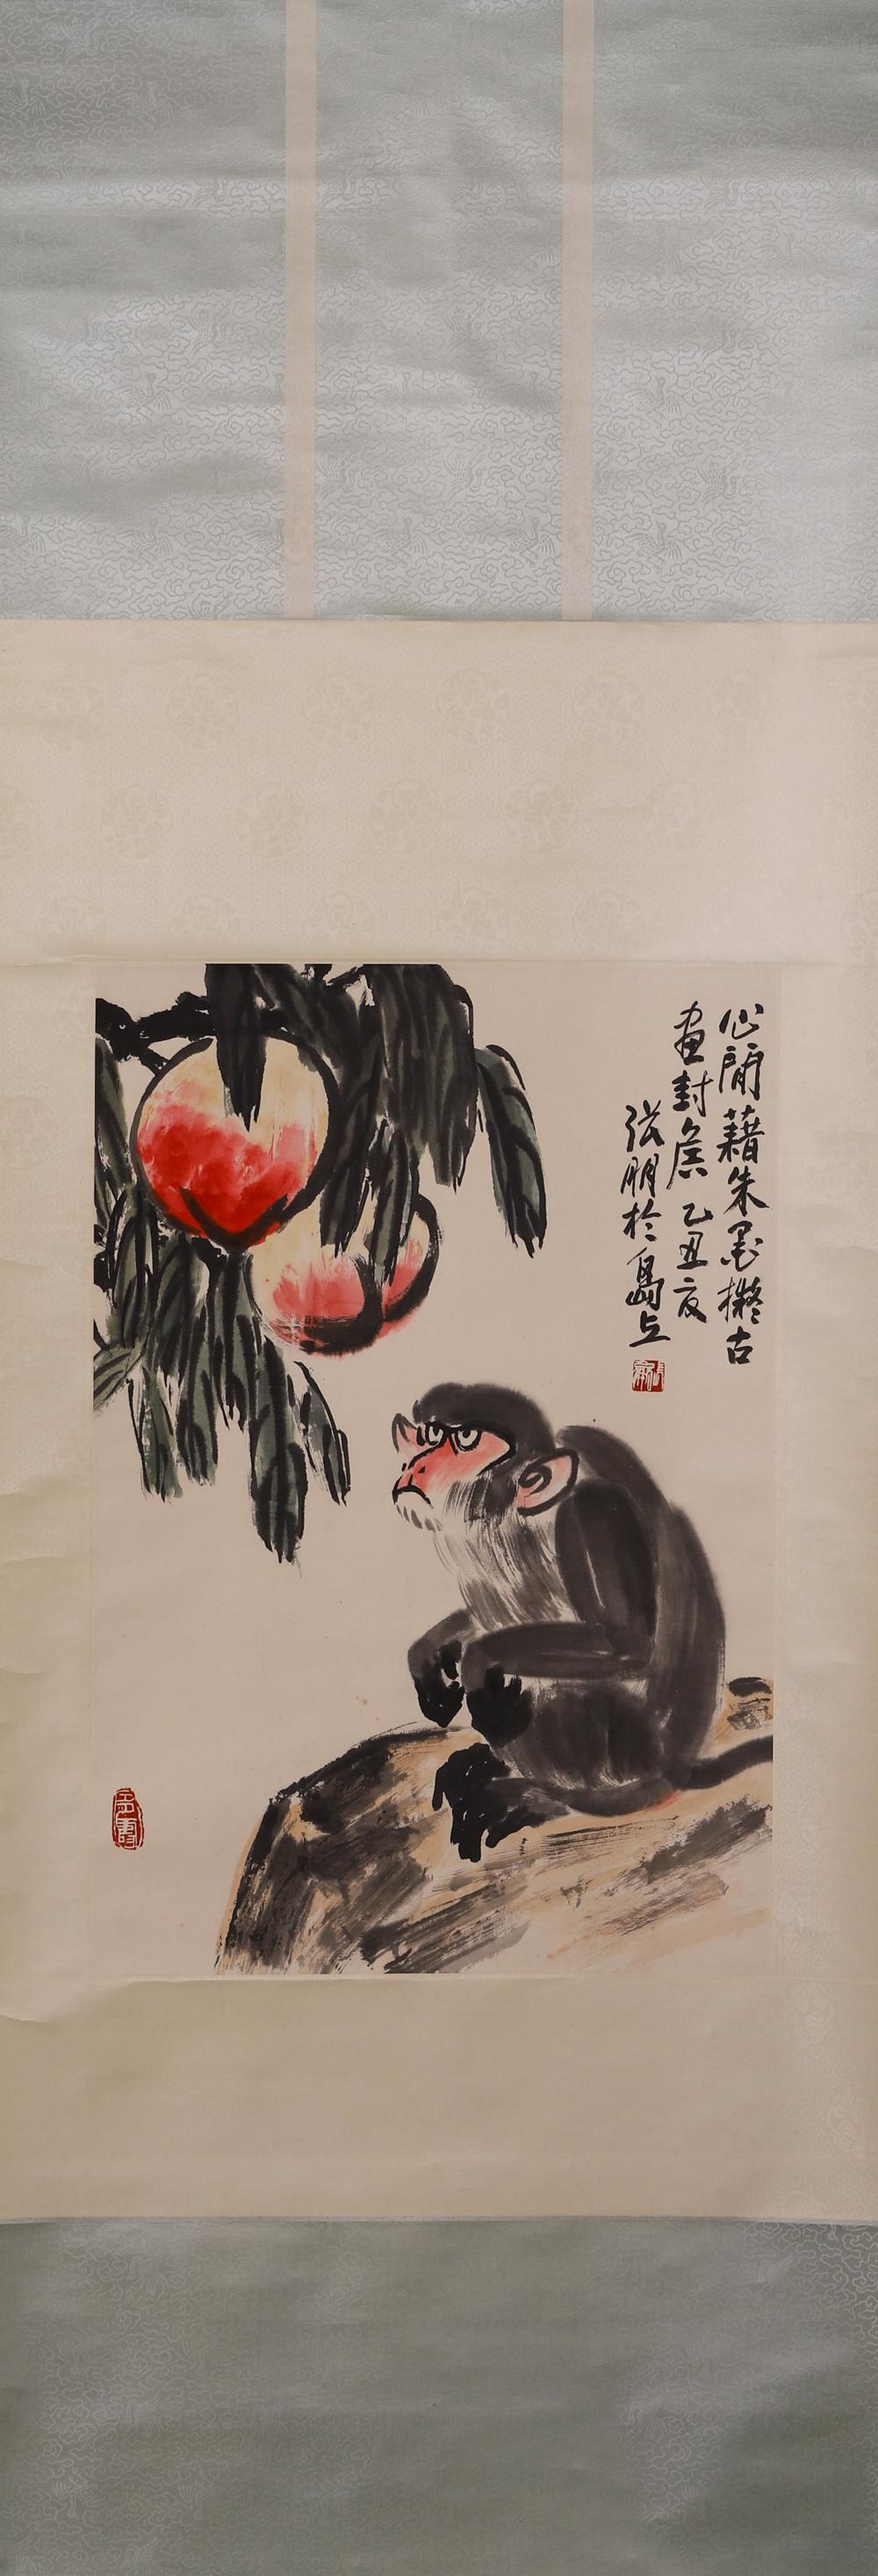 心閒藉朱墨擬古
画封侯 乙丑夜
張朋於島上